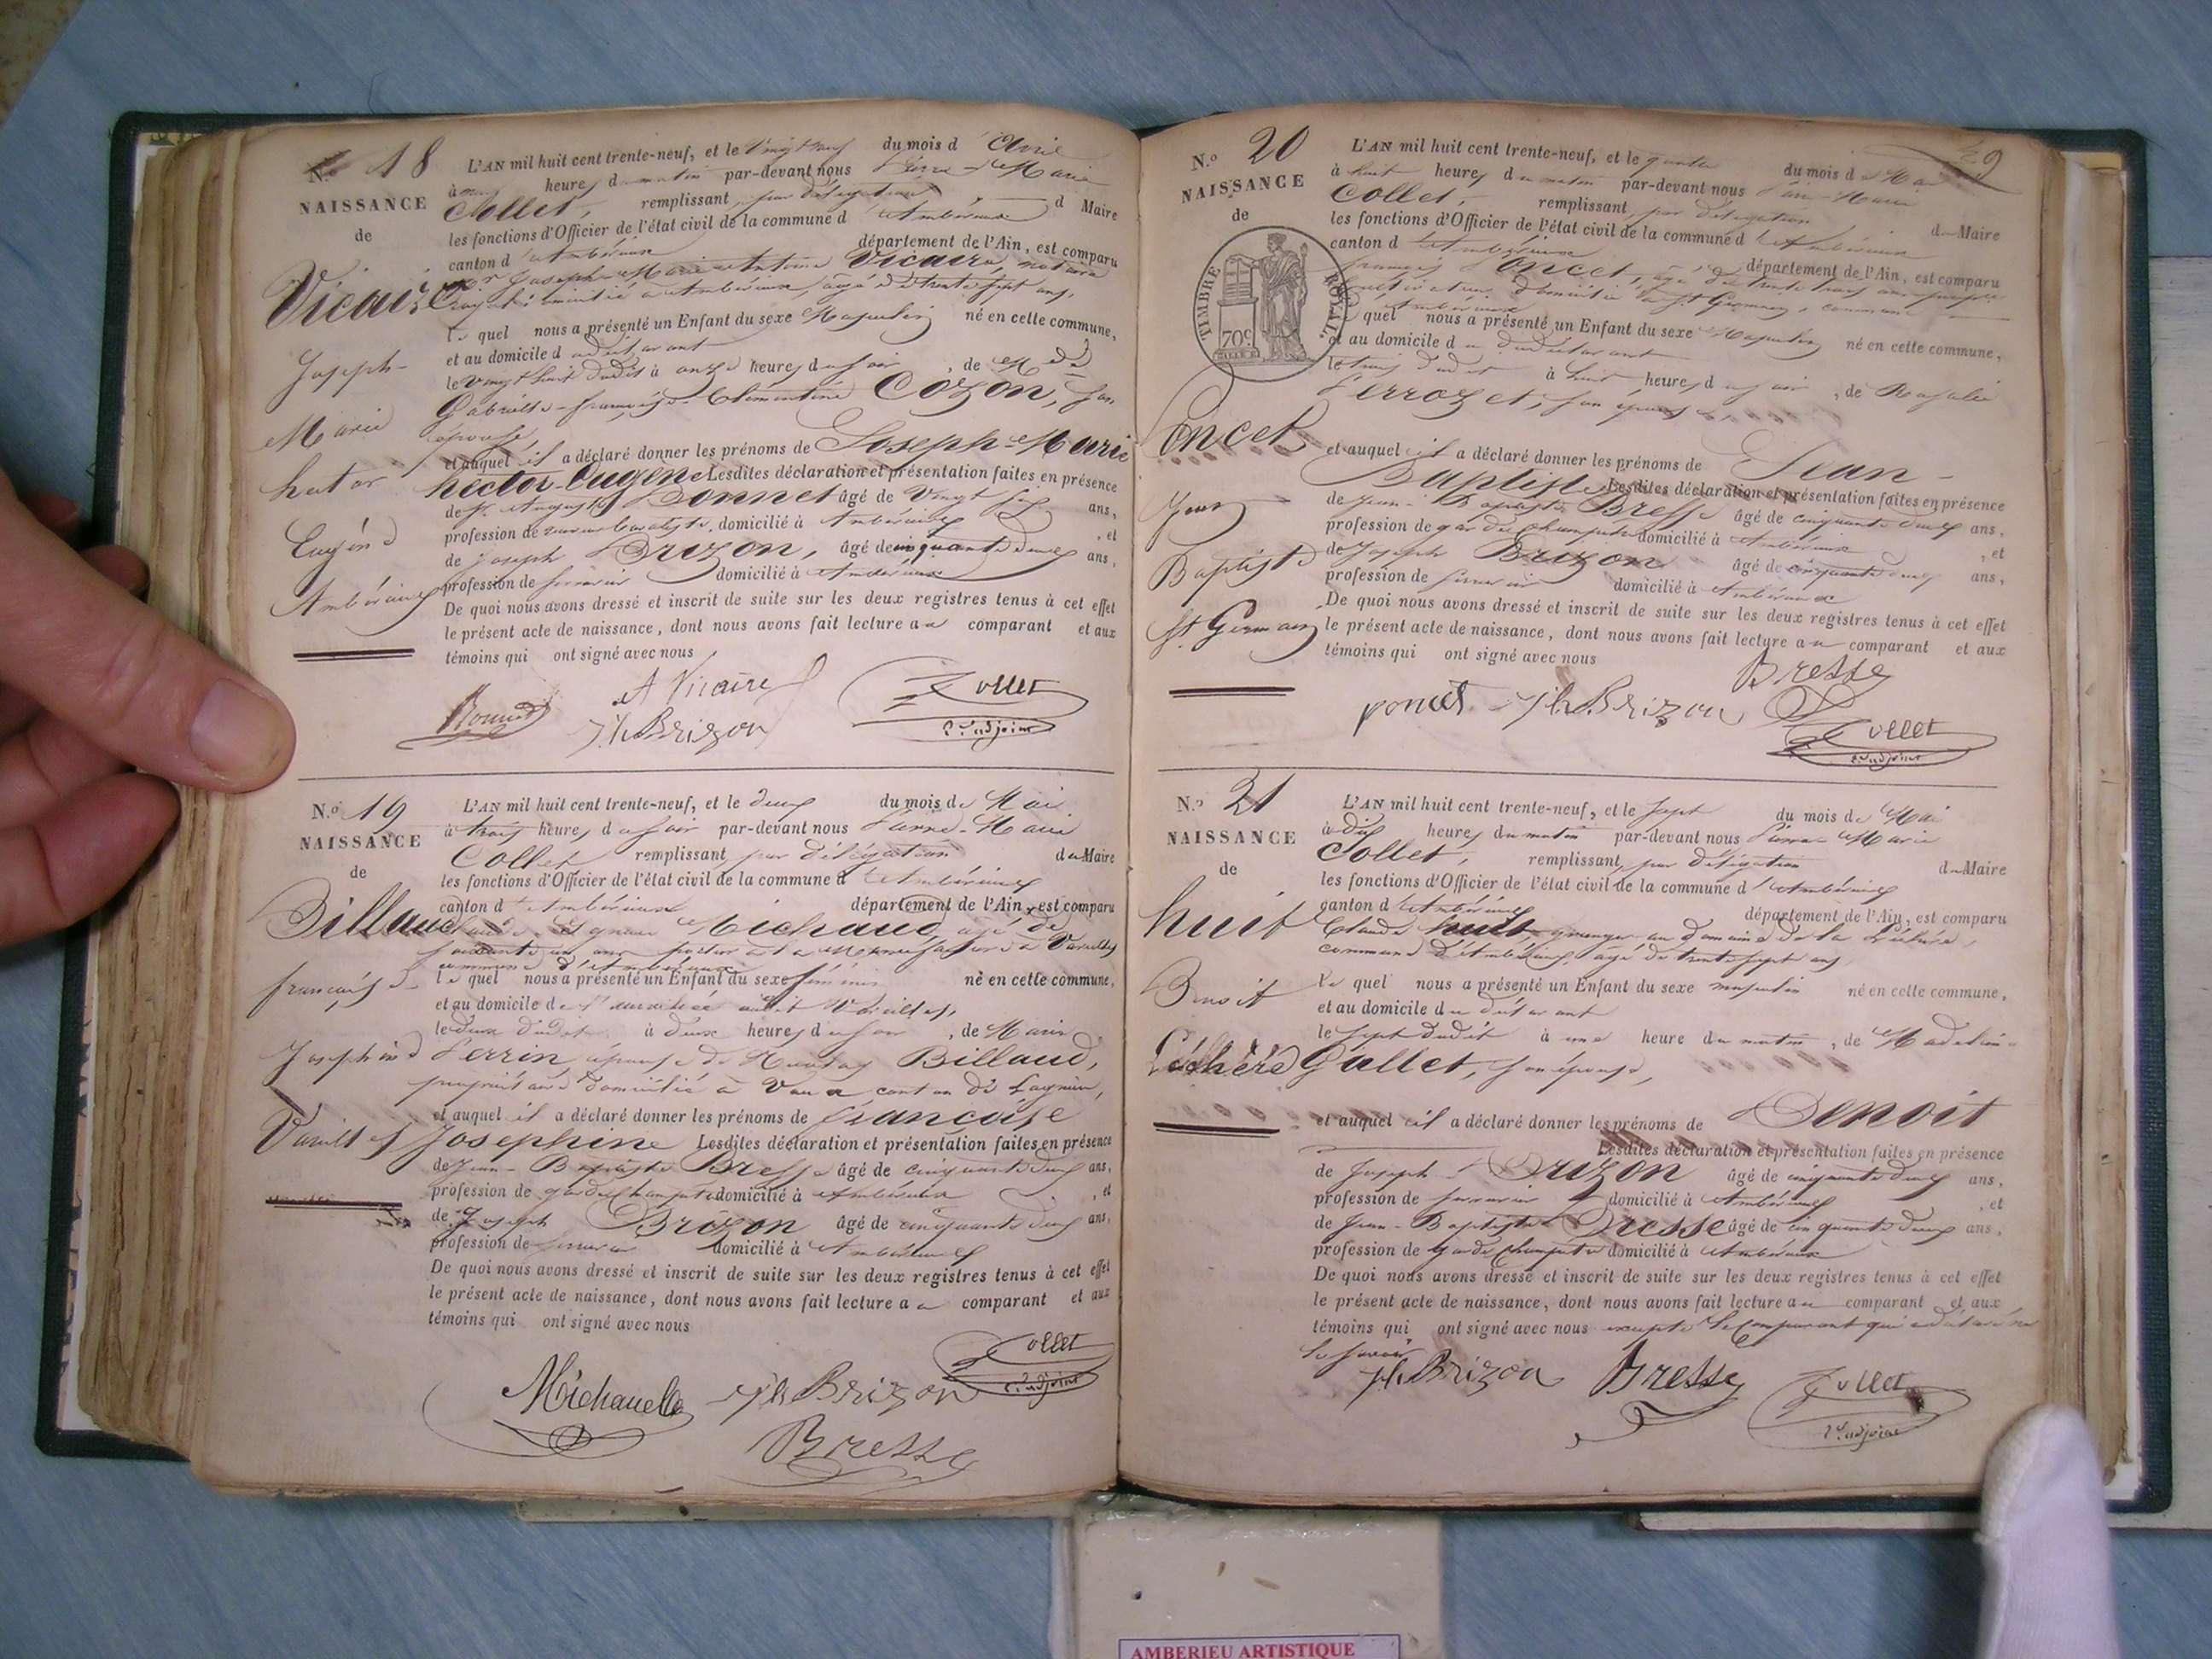 No 18
NAISSANCE
de
Vicaire
Joseph-
Marie
hector
Eugène
Ambérieux
L'AN mil huit cent trente-neuf, et le vingt neuf du mois d'Avril
à heures du matin par-devant nous Pierre-Marie
Collet, remplissant, par délégation d Maire
les fonctions d'Officier de l'état civil de la commune d'Ambérieux
canton d'Ambérieux département de l'Ain, est comparu
Joseph-Marie-Antoine Vicaire, notaire
âgé de trente sept ans,
le quel nous a présenté un Enfant du sexe Masculin né en cette commune,
et au domicile du déclarant
le vingt huit dudit à onze heures du soir, de
Gabrielle-françoise-Clémentine Cozon, son
épouse,
et auquel il a déclaré donner les prénoms de Joseph-Marie
hector-Eugene Lesdites déclaration et présentation faites en présence
de Auguste Bonnet âgé de vingt ans,
profession de domicilié à Ambérieux, et
de Joseph Brizon, âgé de cinquante deux ans,
profession de domicilié à Ambérieux
De quoi nous avons dressé et inscrit de suite sur les deux registres tenus à cet effet
le présent acte de naissance, dont nous avons fait lecture au comparant et aux
témoins qui ont signé avec nous
Bonnet A Vicaire Collet
Jh Brizon 2e adjoint
N.o 19
NAISSANCE
de
Billaud
françoise
Joséphine
Vareilles
L'AN mil huit cent trente-neuf, et le deux du mois de Mai
à trois heures du soir par-devant nous Pierre-Marie
Collet remplissant, par délégation du Maire
les fonctions d'Officier de l'état civil de la commune d'Ambérieux
canton d'Ambérieux département de l'Ain, est comparu
Michaud âgé de
soixante un ans à Vareilles
commune d'Ambérieux
le quel nous a présenté un Enfant du sexe féminin né en cette commune,
et au domicile de audit Vareilles,
le deux dudit à deux heures du soir, de Marie
Perrin épouse de Billaud,
propriétaire domicilié à Vaux canton de Lagnieu,
et auquel il a déclaré donner les prénoms de françoise
Josephine Lesdites déclaration et présentation faites en présence
de Jean-Baptiste Bresse âgé de cinquante deux ans,
profession de garde champêtre domicilié à Ambérieux, et
de Joseph Brizon âgé de cinquante deux ans,
profession de domicilié à Ambérieux
De quoi nous avons dressé et inscrit de suite sur les deux registres tenus à cet effet
le présent acte de naissance, dont nous avons fait lecture au comparant et aux
témoins qui ont signé avec nous
Collet
Michaud Jh Brizon 2e adjoint
Bresse
N.o 20
NAISSANCE
de
TIMBRE ROYAL.
70c.
Poncet
Jean
Baptiste
St. Germain
L'AN mil huit cent trente-neuf, et le quatre du mois de Mai
à huit heures du matin par-devant nous Pierre-Marie
Collet, remplissant, par délégation du Maire
les fonctions d'Officier de l'état civil de la commune d'Ambérieux
canton d'Ambérieux département de l'Ain, est comparu
françois Poncet, âgé de trente trois ans
domicilié à St Germain, commune
d'Ambérieux
le quel nous a présenté un Enfant du sexe Masculin né en cette commune,
et au domicile du déclarant
le trois dudit à huit heures du soir, de Rosalie
Perrozet, son épouse
et auquel il a déclaré donner les prénoms de Jean-
Baptiste Lesdites déclaration et présentation faites en présence
de Jean-Baptiste Bresse âgé de cinquante deux ans,
profession de garde champêtre domicilié à Ambérieux, et
de Joseph Brizon âgé de cinquante deux ans,
profession de domicilié à Ambérieux
De quoi nous avons dressé et inscrit de suite sur les deux registres tenus à cet effet
le présent acte de naissance, dont nous avons fait lecture au comparant et aux
témoins qui ont signé avec nous
Bresse
poncet Jh Brizon
Collet
2e adjoint
N.o 21
NAISSANCE
de
huit
Benoit
L'AN mil huit cent trente-neuf, et le sept du mois de Mai
à dix heures du matin par-devant nous Pierre-Marie
Collet, remplissant, par délégation du Maire
les fonctions d'Officier de l'état civil de la commune d'Ambérieux
canton d'Ambérieux département de l'Ain, est comparu
Claude huit, granger au domaine de la
commune d'Ambérieux, âgé de trente sept ans
le quel nous a présenté un Enfant du sexe masculin né en cette commune,
et au domicile du déclarant
le sept dudit à une heure du matin, de Madeleine
Gullet, son épouse,
et auquel il a déclaré donner les prénoms de Benoit
Lesdites déclaration et présentation faites en présence
de Joseph Brizon âgé de cinquante deux ans,
profession de domicilié à Ambérieux, et
de Jean-Baptiste Bresse âgé de cinquante deux ans,
profession de garde champêtre domicilié à Ambérieux
De quoi nous avons dressé et inscrit de suite sur les deux registres tenus à cet effet
le présent acte de naissance, dont nous avons fait lecture au comparant et aux
témoins qui ont signé avec nous excepté le comparant qui a déclaré ne
le savoir
Jh Brizon Bresse Collet
2e adjoint
AMBERIEU ARTISTIQUE